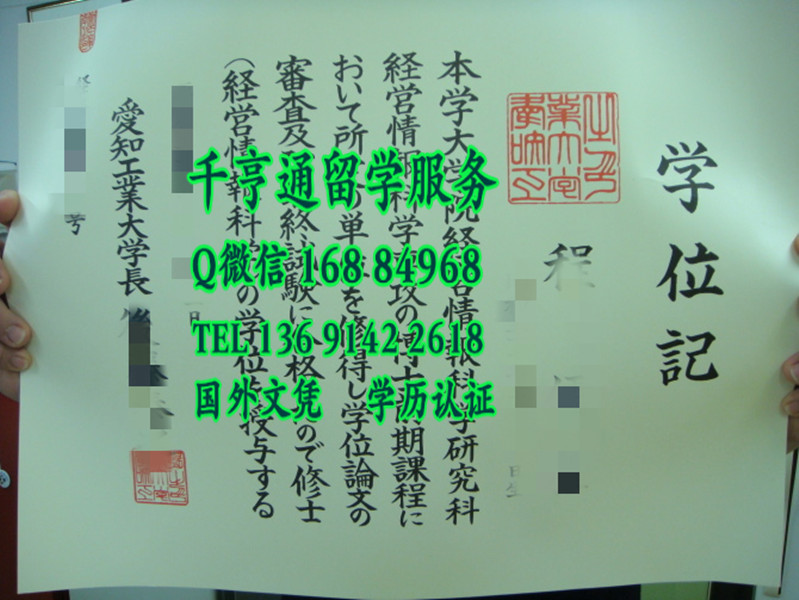 学位記
程
日生
本学大学院経営情報科学研究科
経営情報科学専攻の博士前期課程に
おいて所の単を修得し学位論文の
審査及終試験に合格ので修士
（経営情報科の学位を授与する
愛知工業大学長
千亨通留学服务
Q微信 168 84968
TEL 136 9142 2618
国外文凭 学历认证